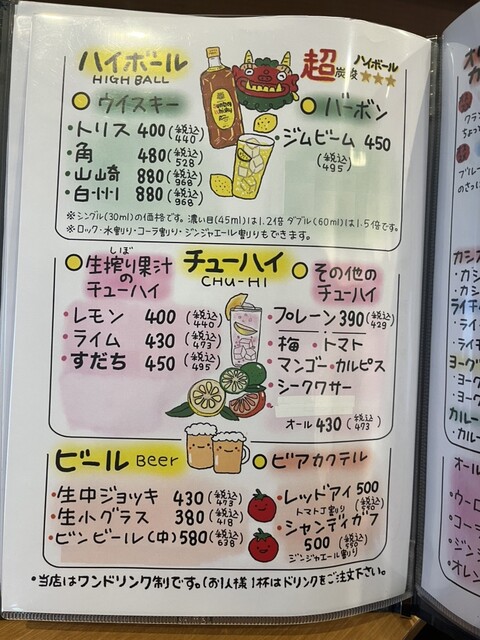 ハイボール
HIGH BALL
超炭酸ハイボール★★★
ウイスキー
・トリス 400(税込)440
・角 480(税込)528
・山崎 880(税込)968
・白州 880(税込)968
バーボン
・ジムビーム 450
(税込)495
※シングル(30ml)の価格です。濃い目(45ml)は1.2倍 ダブル(60ml)は1.5倍です。
※ロック・水割り・コーラ割り・ジンジャエール割りもできます。
チューハイ
CHU-HI
生搾り果汁
しぼ
のチューハイ
・レモン 400(税込)440
・ライム 430(税込)473
・すだち 450(税込)495
その他の
チューハイ
・プレーン 390(税込)429
・梅・トマト
・マンゴー・カルピス
・シークワサー
オール 430(税込)473
ビール Beer
・生中ジョッキ 430(税込)473
・生小グラス 380(税込)418
・ビンビール(中)580(税込)638
ビアカクテル
・レッドアイ 500
トマトJ割り(税込)550
・シャンディガフ
500(税込)550
ジンジャエール割り
・当店はワンドリンク制です。(お1人様1杯はドリンクをご注文下さい。
カシス
・カシ
・カシ
ライチ
・ライ
・ライ
ヨーグ
・ヨー
・ヨー
カルー
・カルー
オール
・ウーロ
・コーラ
・ジンジ
・オレン